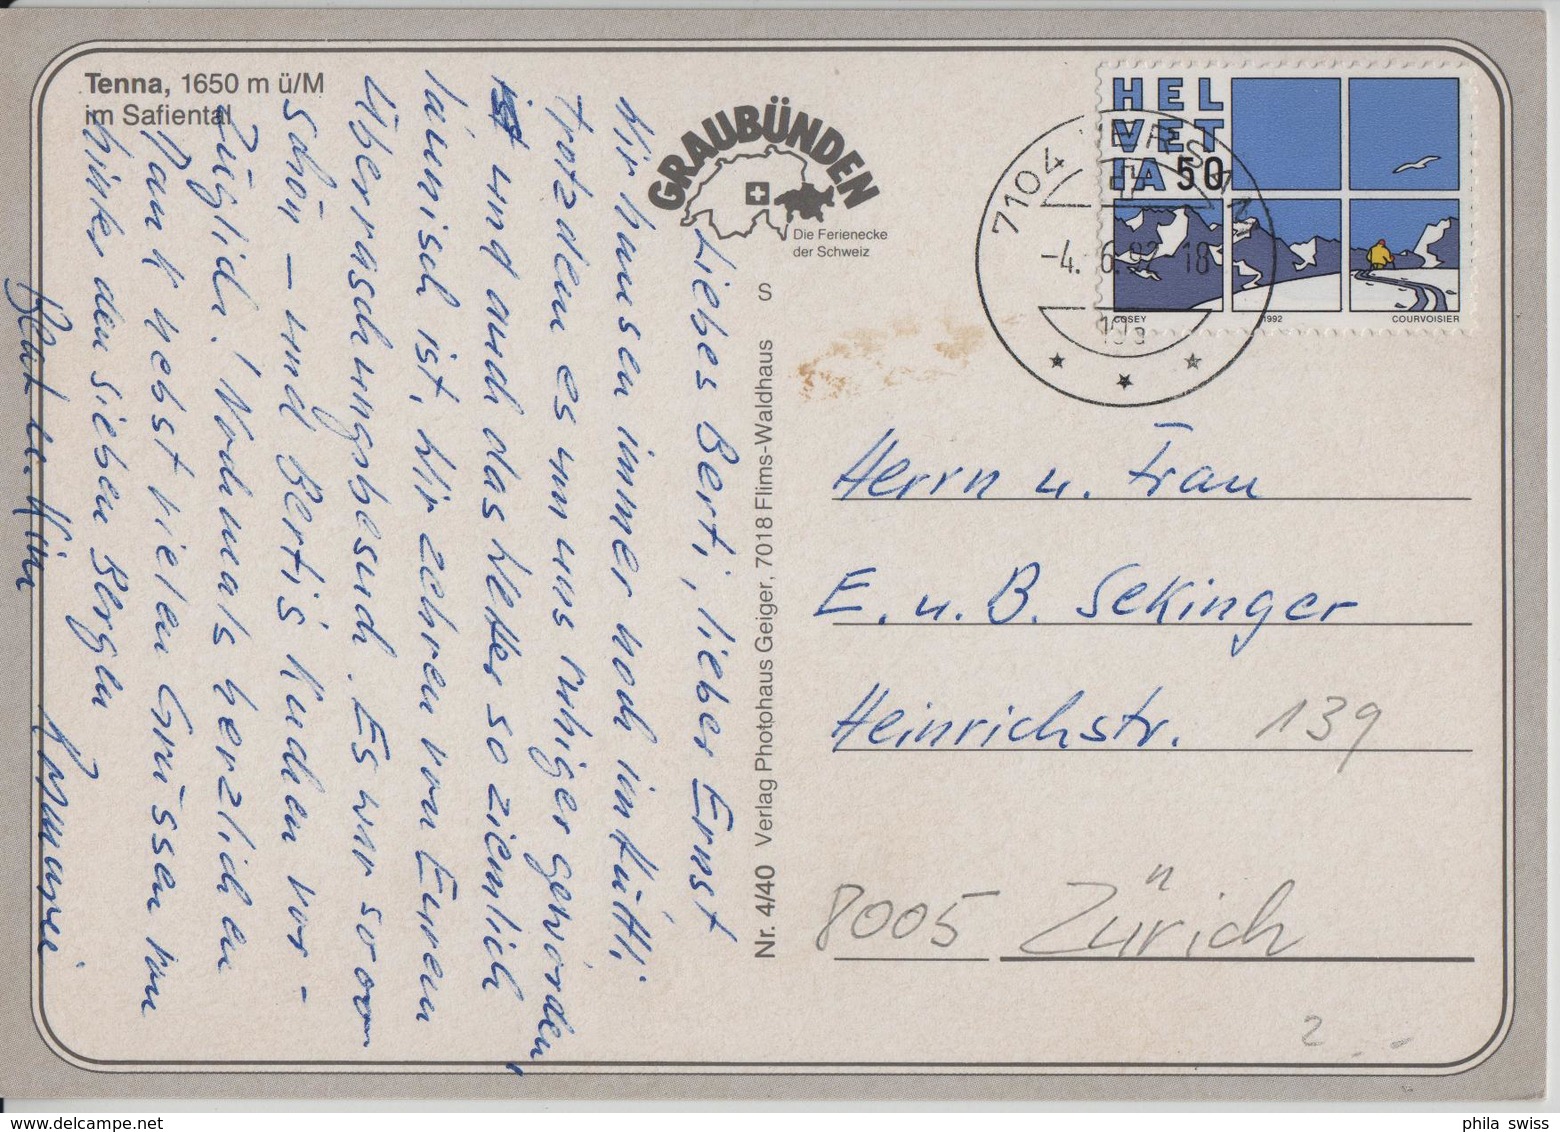 Tenna, 1650 m ü/M
im Safiental
GRAUBÜNDEN
Die Ferienecke
der Schweiz
S
Nr. 4/40 Verlag Photohaus Geiger, 7018 Flims-Waldhaus
HEL
VET
IA 50
COSEY 1992 COURVOISIER
7104 VERSAM
-4. 6. 92 18
Liebes Berti, lieber Ernst
Wir hausen immer noch im Hüttli
trotzdem es um uns ruhiger geworden,
ist und auch das Wetter so ziemlich
launisch ist. Wir zehren von Eurem
Überraschungsbesuch. Es war so
schön – und Bertis Kuchen vor-
züglich! Nochmals herzlichen
Dank nebst vielen Grüssen von
hinter den sieben Bergen
Rosmarie
Herrn u. Frau
E. u. B. Sekinger
Heinrichstr. 139
8005 Zürich
2.-
phila swiss